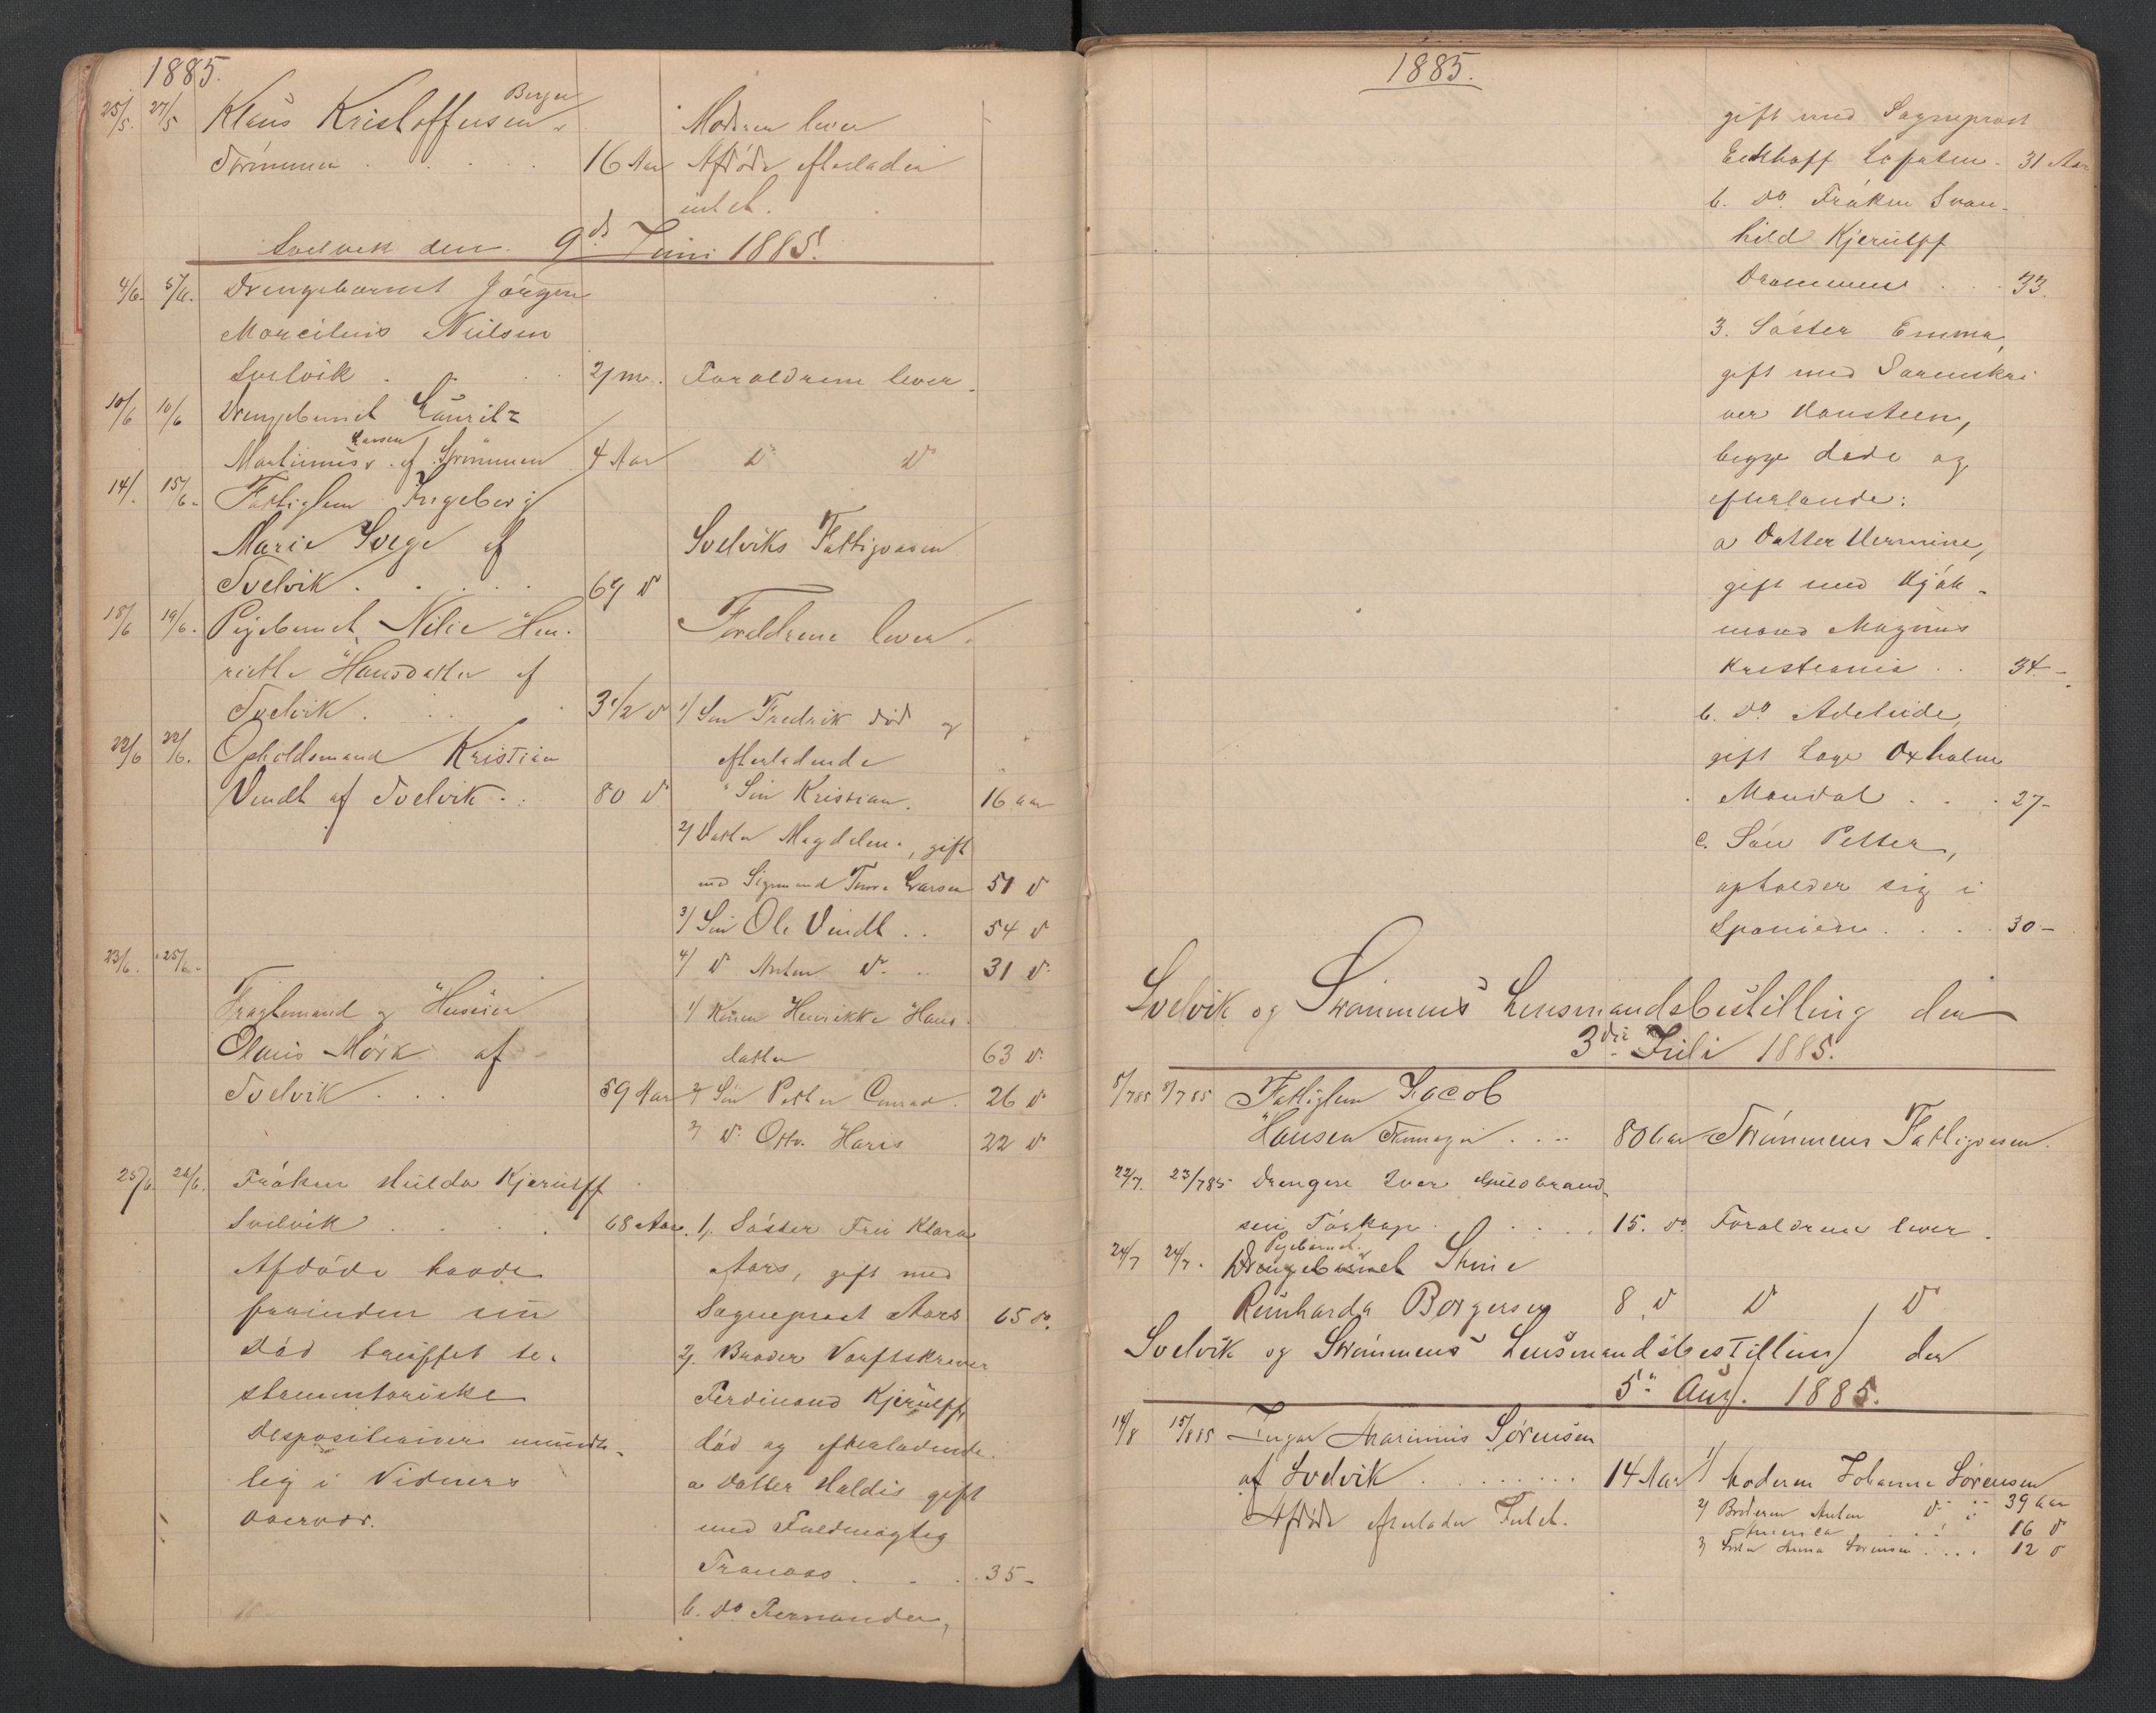 1885.
25/5. 27/5 Klaus Kristoffersen Berger
Strömmen . . . . 16 Aar
Moderen lever
Afdöde efterlader
intet.
Svelvik den 9de Juni 1885.
4/6. 5/6. Drengebarnet Jörgen
Marcilius Nielsen
Svelvik . . . 2 m. Forældrene lever.
10/6 10/6 Drengebarnet Lauritz
Martinius Larsen af Strömmen 4 Aar Do Do
14/. 15/6. Fattiglem Ingeborg
Marie Svege af
Svelvik . . . . . 69 Do
Svelviks Fattigvæsen
18/6 19/6. Pigebarnet Nilie Hen-
riette Hansdatter af
Svelvik . . . 3 1/2 Do
Forældrene lever.
22/6 22/6. Opholdsmand Kristian
Vindt af Svelvik . . 80 Do
1/ Sön Fredrik död og
efterladende
Sön Kristian. 16 aar
2/ Datter Magdelene, gift
med Sigmund Larsen 51 Do
3/ Sön Ole Vindt . . 54 Do
4/ Do Anton Do . . 31 Do
23/6. 25/6.
Fragtemand og Huseier
Olaus Mörk af
Svelvik . . . 59 Aar
1/ Konen Henrikke Hans-
datter 63 Do
2/ Sön Petter Conrad . 26 Do
3/ Do Otto Haris 22 Do
25/6 26/6. Fröken Hulda Kjerulff
Svelvik . . . . 68 Aar.
Afdöde havde
forinden sin
Död truffet te-
stamentariske
Dispositioner mundt-
lig i Vidners
overvær.
1/. Söster Fru Klara
Aars, gift med
Sogneprest Aars 65 do.
2/. Broder Toldskriver
Ferdinand Kjerulff
död og efterladende.
a Datter Haldis gift
med Fuldmægtig
Tranaas . . . 35-
b. do Fernanda,
1885.
gift med Sogneprest
Eckhoff Lofoten. 31 Aar
b. do. Fröken Svan-
hild Kjerulff
Drammen . . . 33.
3. Söster Emma,
gift med Sorenskri
ver Hansteen,
begge döde og
efterlande:
a Datter Hermine,
gift med Kjöb-
mand Magnus
Kristiania . . 34.-
b. do Adelaide,
gift Lage Oxholm
Mandal . . . 27-
c. Sön Petter,
opholder sig i
Spanien . . . . 30-
Svelvik og Strömmens Lensmandsbestilling den
3die Juli 1885.
8/7 85 8/7 85 Fattiglem Jacob
Hansen . . . . 80 Aar Strömmens Fattigvæsen.
22/7. 23/7 85. Drengen Iver Guldbrand-
sen . . . . . 15. do Forældrene lever.
24/7 24/7. Drengebarnet Pigebarnet Stine
Reinharda Borgersen 8 Do Do Do
Svelvik og Strömmens Lensmandsbestilling den
5te Aug. 1885.
14/8 15/8 85 Marinius Sörensen
af Svelvik . . . . . . . 14 Aar
Afdöde efterlader Intet.
1/ Moderen Johanne Sörensen
2/ Broderen Anton Do . . 39 Aar
America . . . 16 Do
3/ Söster Anna Sörensen . . . . 12 Do